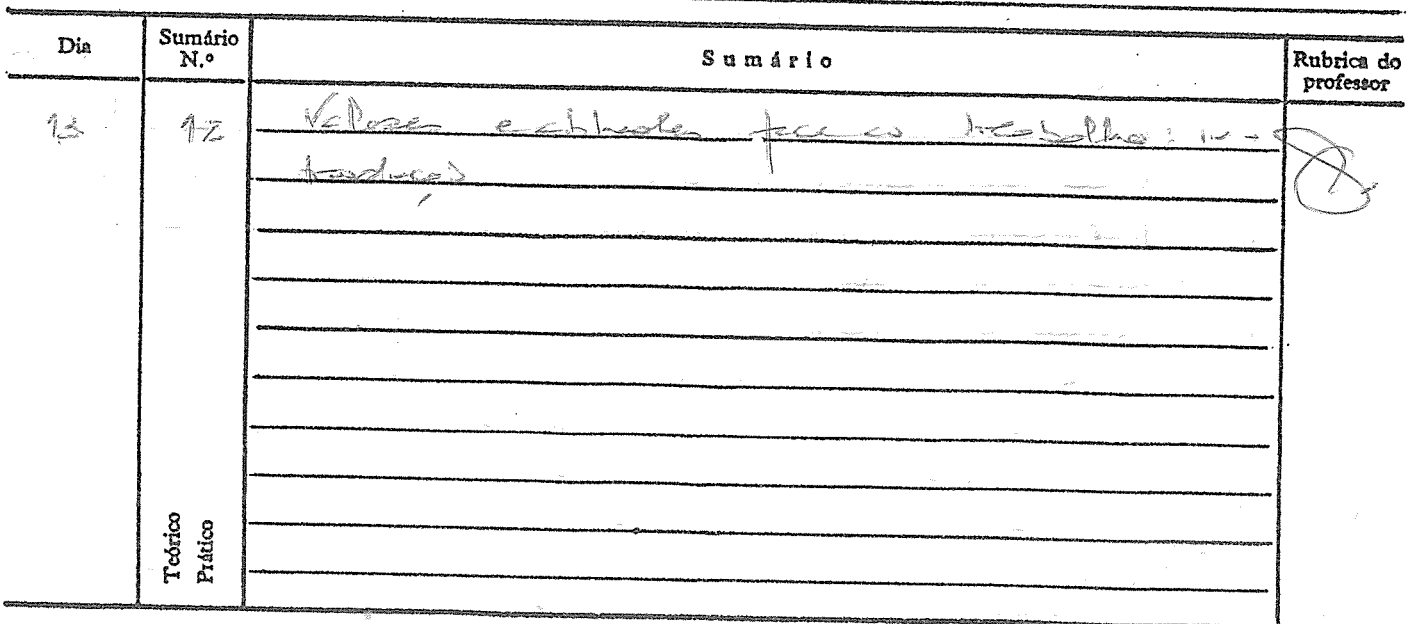 Dia
Sumário N.º
Sumário
Rubrica do professor
13 12 Valores e atitudes face ao trabalho: in-
trodução
Teórico
Prático